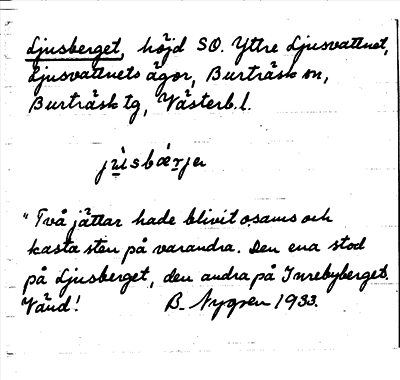 Ljusberget, höjd SO. Yttre Ljusvattnet,
Ljusvattnets ägor, Burträsk sn,
Burträsk tg, Västerb. l.
"Två jättar hade blivit osams och
kasta sten på varandra. Den ena stod
på Ljusberget, den andra på Innebyberget.
Vänd! B. Nygren 1933.